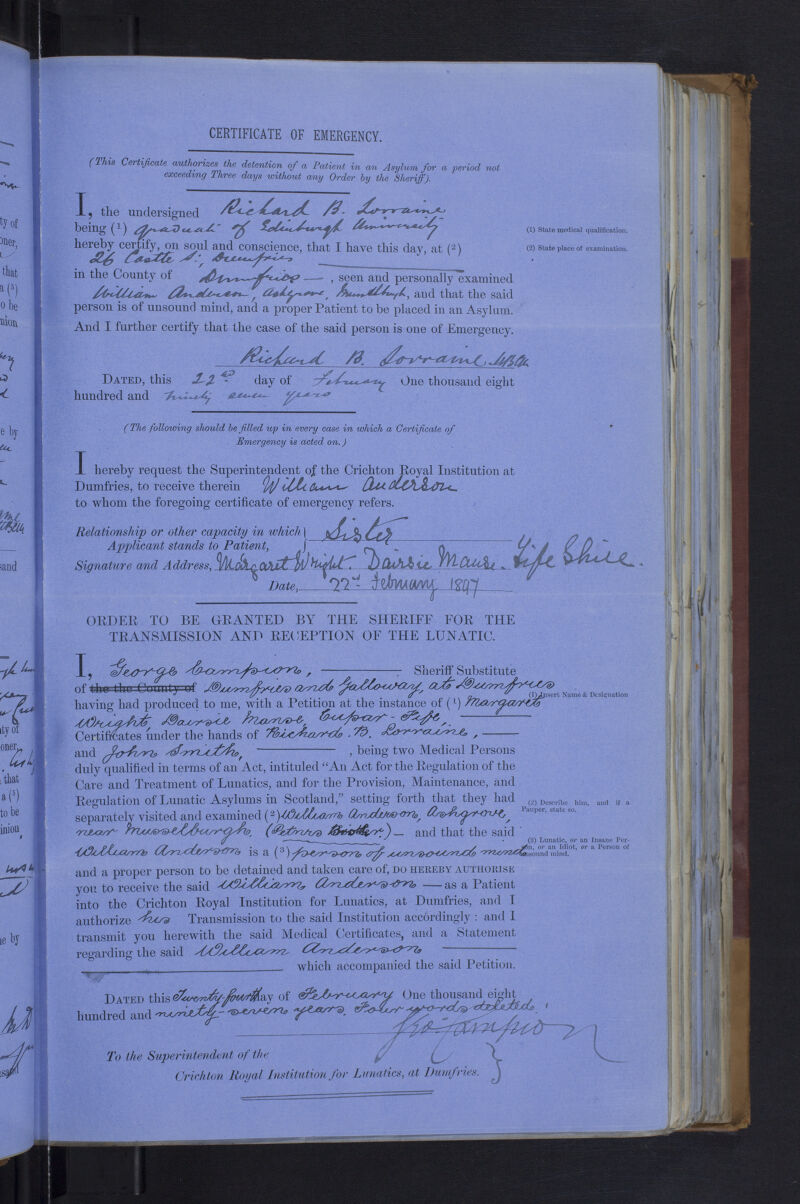 CERTIFICATE OF EMERGENCY.
(This Certificate authorizes the detention of a Patient in an Asylum for a period not
exceeding Three days without any Order by the Sheriff).
I, the undersigned Richard B. Lorraine
being (1) graduate of Edinburgh University
(1) State medical qualification.
hereby certify, on soul and conscience, that I have this day, at (2)
(2) State place of examination.
26 Castle St, Dumfries
in the County of Dumfries — , seen and personally examined
William Anderson, Ashgrove, Musselburgh, and that the said
person is of unsound mind, and a proper Patient to be placed in an Asylum.
And I further certify that the case of the said person is one of Emergency.
Richard B. Lorraine,
DATED, this 22nd day of February One thousand eight
hundred and ninety seven years
(The following should be filled up in every case in which a Certificate of
Emergency is acted on.)
I hereby request the Superintendent of the Crichton Royal Institution at
Dumfries, to receive therein William Anderson
to whom the foregoing certificate of emergency refers.
Relationship or other capacity in which
Applicant stands to Patient, } Sister
Signature and Address, Margaret Wright. Dairsie Manse.
Date, 22nd February 1897
ORDER TO BE GRANTED BY THE SHERIFF FOR THE
TRANSMISSION AND RECEPTION OF THE LUNATIC.
I, George Campion, — Sheriff Substitute
of the the County of Dumfries and Galloway, at Dumfries
having had produced to me, with a Petition at the instance of (1) Margaret
(1) Insert Name & Designation
Wright, Dairsie Manse, Cupar - Fife, —
Certificates under the hands of Richard B. Lorraine, —
and John Smith, — , being two Medical Persons
duly qualified in terms of an Act, intituled "An Act for the Regulation of the
Care and Treatment of Lunatics, and for the Provision, Maintenance, and
Regulation of Lunatic Asylums in Scotland," setting forth that they had
separately visited and examined (2) William Anderson, Ashgrove,
(2) Describe him, and if a
Pauper, state so.
near Musselburgh, ( ) — and that the said
William Anderson is a (3) person of unsound mind
(3) Lunatic, or an Insane Per-
son, or an Idiot, or a Person of
unsound mind.
and a proper person to be detained and taken care of, DO HEREBY AUTHORISE
you to receive the said William Anderson — as a Patient
into the Crichton Royal Institution for Lunatics, at Dumfries, and I
authorize his Transmission to the said Institution accordingly : and I
transmit you herewith the said Medical Certificates, and a Statement
regarding the said William Anderson —
which accompanied the said Petition.
DATED this Twenty-fourth day of February One thousand eight
hundred and ninety-seven years. Four words deleted.
Geo Campion
To the Superintendent of the
Crichton Royal Institution for Lunatics, at Dumfries. }